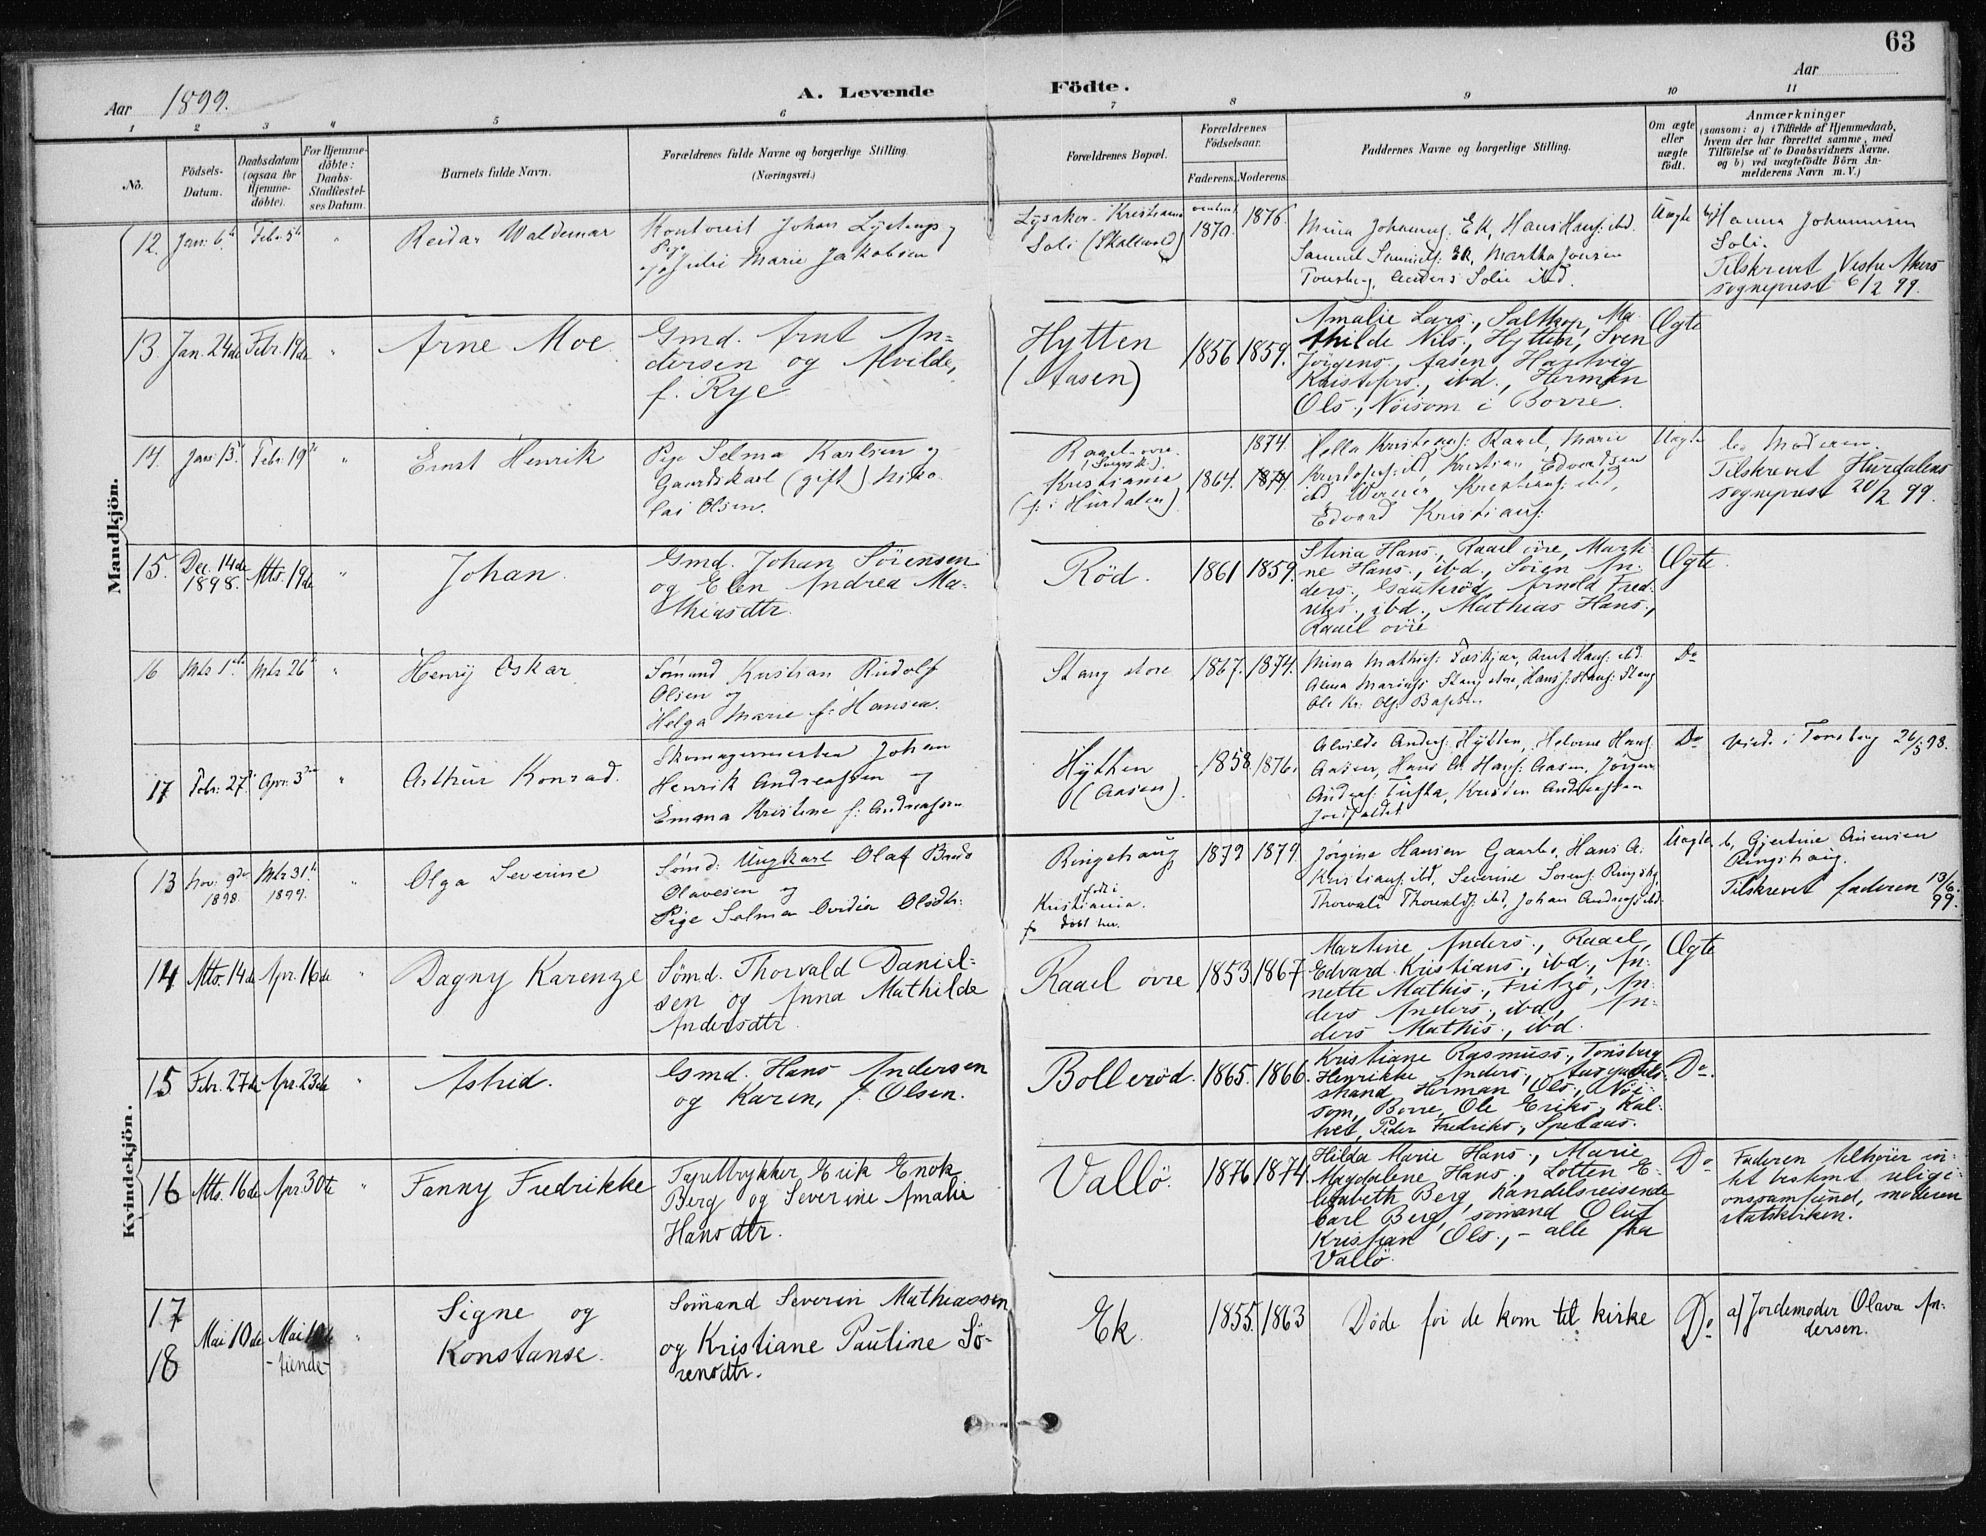 63
Aar 1899.
A. Levende Födte.
Aar
1 2 3 4 5 6 7 8 9 10 11
No.
Födsels-Datum.
Daabsdatum (ogsaa for Hjemmedöbte).
For Hjemmedöbte: Daabs-Stadfæstelses Datum.
Barnets fulde Navn.
Forældrenes fulde Navne og borgerlige Stilling.
(Næringsvei.)
Forældrenes Bopæl.
Forældrenes Födselsaar.
Faderens. Moderens.
Faddernes Navne og borgerlige Stilling.
Om ægte eller uægte födt.
Anmærkninger
(saasom: a) i Tilfælde af Hjemmedaab,
hvem der har forrettet samme, med
Tilföielse af to Daabsvidners Navne.
og b) ved uægtefödte Börn An-
melderens Navn m. V.)
Mandkjön.
12. Jan: 6 Febr. 5 " Reidar Waldemar
Kontorist Johan
Pige Julie Marie Jakobsen
Lysaker Kristiania
Soli (Skallevold)
1870. 1876.
Mina Johannes: Ek, Hans Hans: ibd.
Samuel Samuels: Ek, Martha Jonsen
Tonsberg, Anders Solie ibd.
Uægte
Hanna Johannesen
Soli.
Tilskrevet Vestre Akers
sogneprest 6/2 99.
13. Jan. 24de Febr. 19de " Arne Moe
Gmd. Arnt An-
dersen og Alvilde,
f. Rye
Hytten
(Aasen)
1856 1859.
Amalie Lars., Saltkop, Ma-
thilde Nils., Hytten, Sven
Jörgens., Aasen, Hartvig
Kristofers., ibd., Herman
Ols., Nöisom i Borre.
Ægte
14. Jan: 13. Febr. 19 " Ernst Henrik
Pige Selma Karlsen og
Gaardskarl (gift) Niko-
lai Olsen.
Raael övre
Kristiania
(f: i Hurdalen)
1864. 1874.
Raael, Marie
ibd, Kristian Edvardsen
ibd, Werner Kristians: ibd,
Edvard Kristians:
Uægte
b, Moderen.
Tilskrevet Hurdalens
sogneprest 20/2 99.
15. Dec. 14de 1898. Mts. 19de " Johan.
Gmd. Johan Sörensen
og Elen Andrea Ma-
thiasdtr.
Röd.
1861 1859.
Stina Hans., Raael övre, Marti-
ne Hans., ibd., Sören An-
ders., Gauteröd, Arnold Fred-
riks., ibd., Mathias Hans.,
Raael övre
Ægte.
16 Mts 1 Mts 26 " Henry Oskar
Sömand Kristian Rudolf
Olsen og
Helga Marie f: Hansen.
Stang store
1867. 1874.
Mina Mathis: Arnt Hans: ibd
Alma Marius: Stang store, Hans: Hans: Stang
Ole Kr: Ols: Bassen
Do
17 Febr: 27. Apr. 3 " Arthur Konrad.
Skomagermester Johan
Henrik Andreassen og
Emma Kristine f: Andreassen
Hytten
(Aasen).
1858 1876.
Alvilde Anders: Hytten, Helene Hans:
Aasen, Hans A. Hans: Aasen, Jörgen
Anders: Tufta, Kristen Andreassen
Do
Viede i Tonsberg 26/5 98.
Kvindekjön.
13 Nov. 9 1898 Mts 31 1899. " Olga Severine
Sömd: Ungkarl Olaf
Olavesen og
Pige Selma Ovidia Olsdtr.
Ringshaug
födt i
Kristiania.
döbt her.
1872 1879
Jörgine Hansen Gaarbo, Hans A.
Kristians: ibd, Severine Sörens: Ringshg,
Thorvald Thorvalds: ibd, Johan Andreass: ibd
Uægte
b, Gjertine
Ringshaug.
Tilskrevet faderen 13/6 99.
14 Mts. 14de Apr. 16de " Dagny Karenze
Sömd. Thorvald Daniel-
sen og Anna Mathilde
Andersdtr.
Raael övre
1853. 1867
Martine Anders., Raael,
Edvard Kristians., ibd., An-
nette Mathis., Fritzö, An-
ders Anders., ibd., An-
ders Mathis., ibd.
Ægte
15 Febr. 27de Apr. 23de " Astrid.
Gmd. Hans Andersen
og Karen, f. Olsen.
Bolleröd.
1865. 1866.
Kristiane Rasmuss., Tonsberg
Henrikke Anders., Aasgaard-
strand, Herman Ols., Nöi-
som, Borre, Ole Eriks., Kal-
Peder Fredriks.,
Do.
16 Mts. 16de Apr. 30te " Fanny Fredrikke
Tapettrykker Erik Enok
Berg og Severine Amalie
Hansdtr.
Vallö.
1876 1874.
Hilda Marie Hans., Marie
Magdalene Hans., Lotten E-
lisabeth Berg, Handelsreisende
Carl Berg, sömand Oluf
Kristian Ols., - alle fra
Vallö.
Do
Faderen tilhörer in-
tet bestemt religi-
onssamfund, moderen
statskirken.
17
18
Mai 10de Mai 10de
-tiende-
" Signe og
Konstanse.
Sömand Severin Mathiassen
og Kristiane Pauline Sö-
rensdtr.
Ek.
1855. 1863
Döde för de kom til kirke
Do
a) Jordemoder Olava An-
dersen.